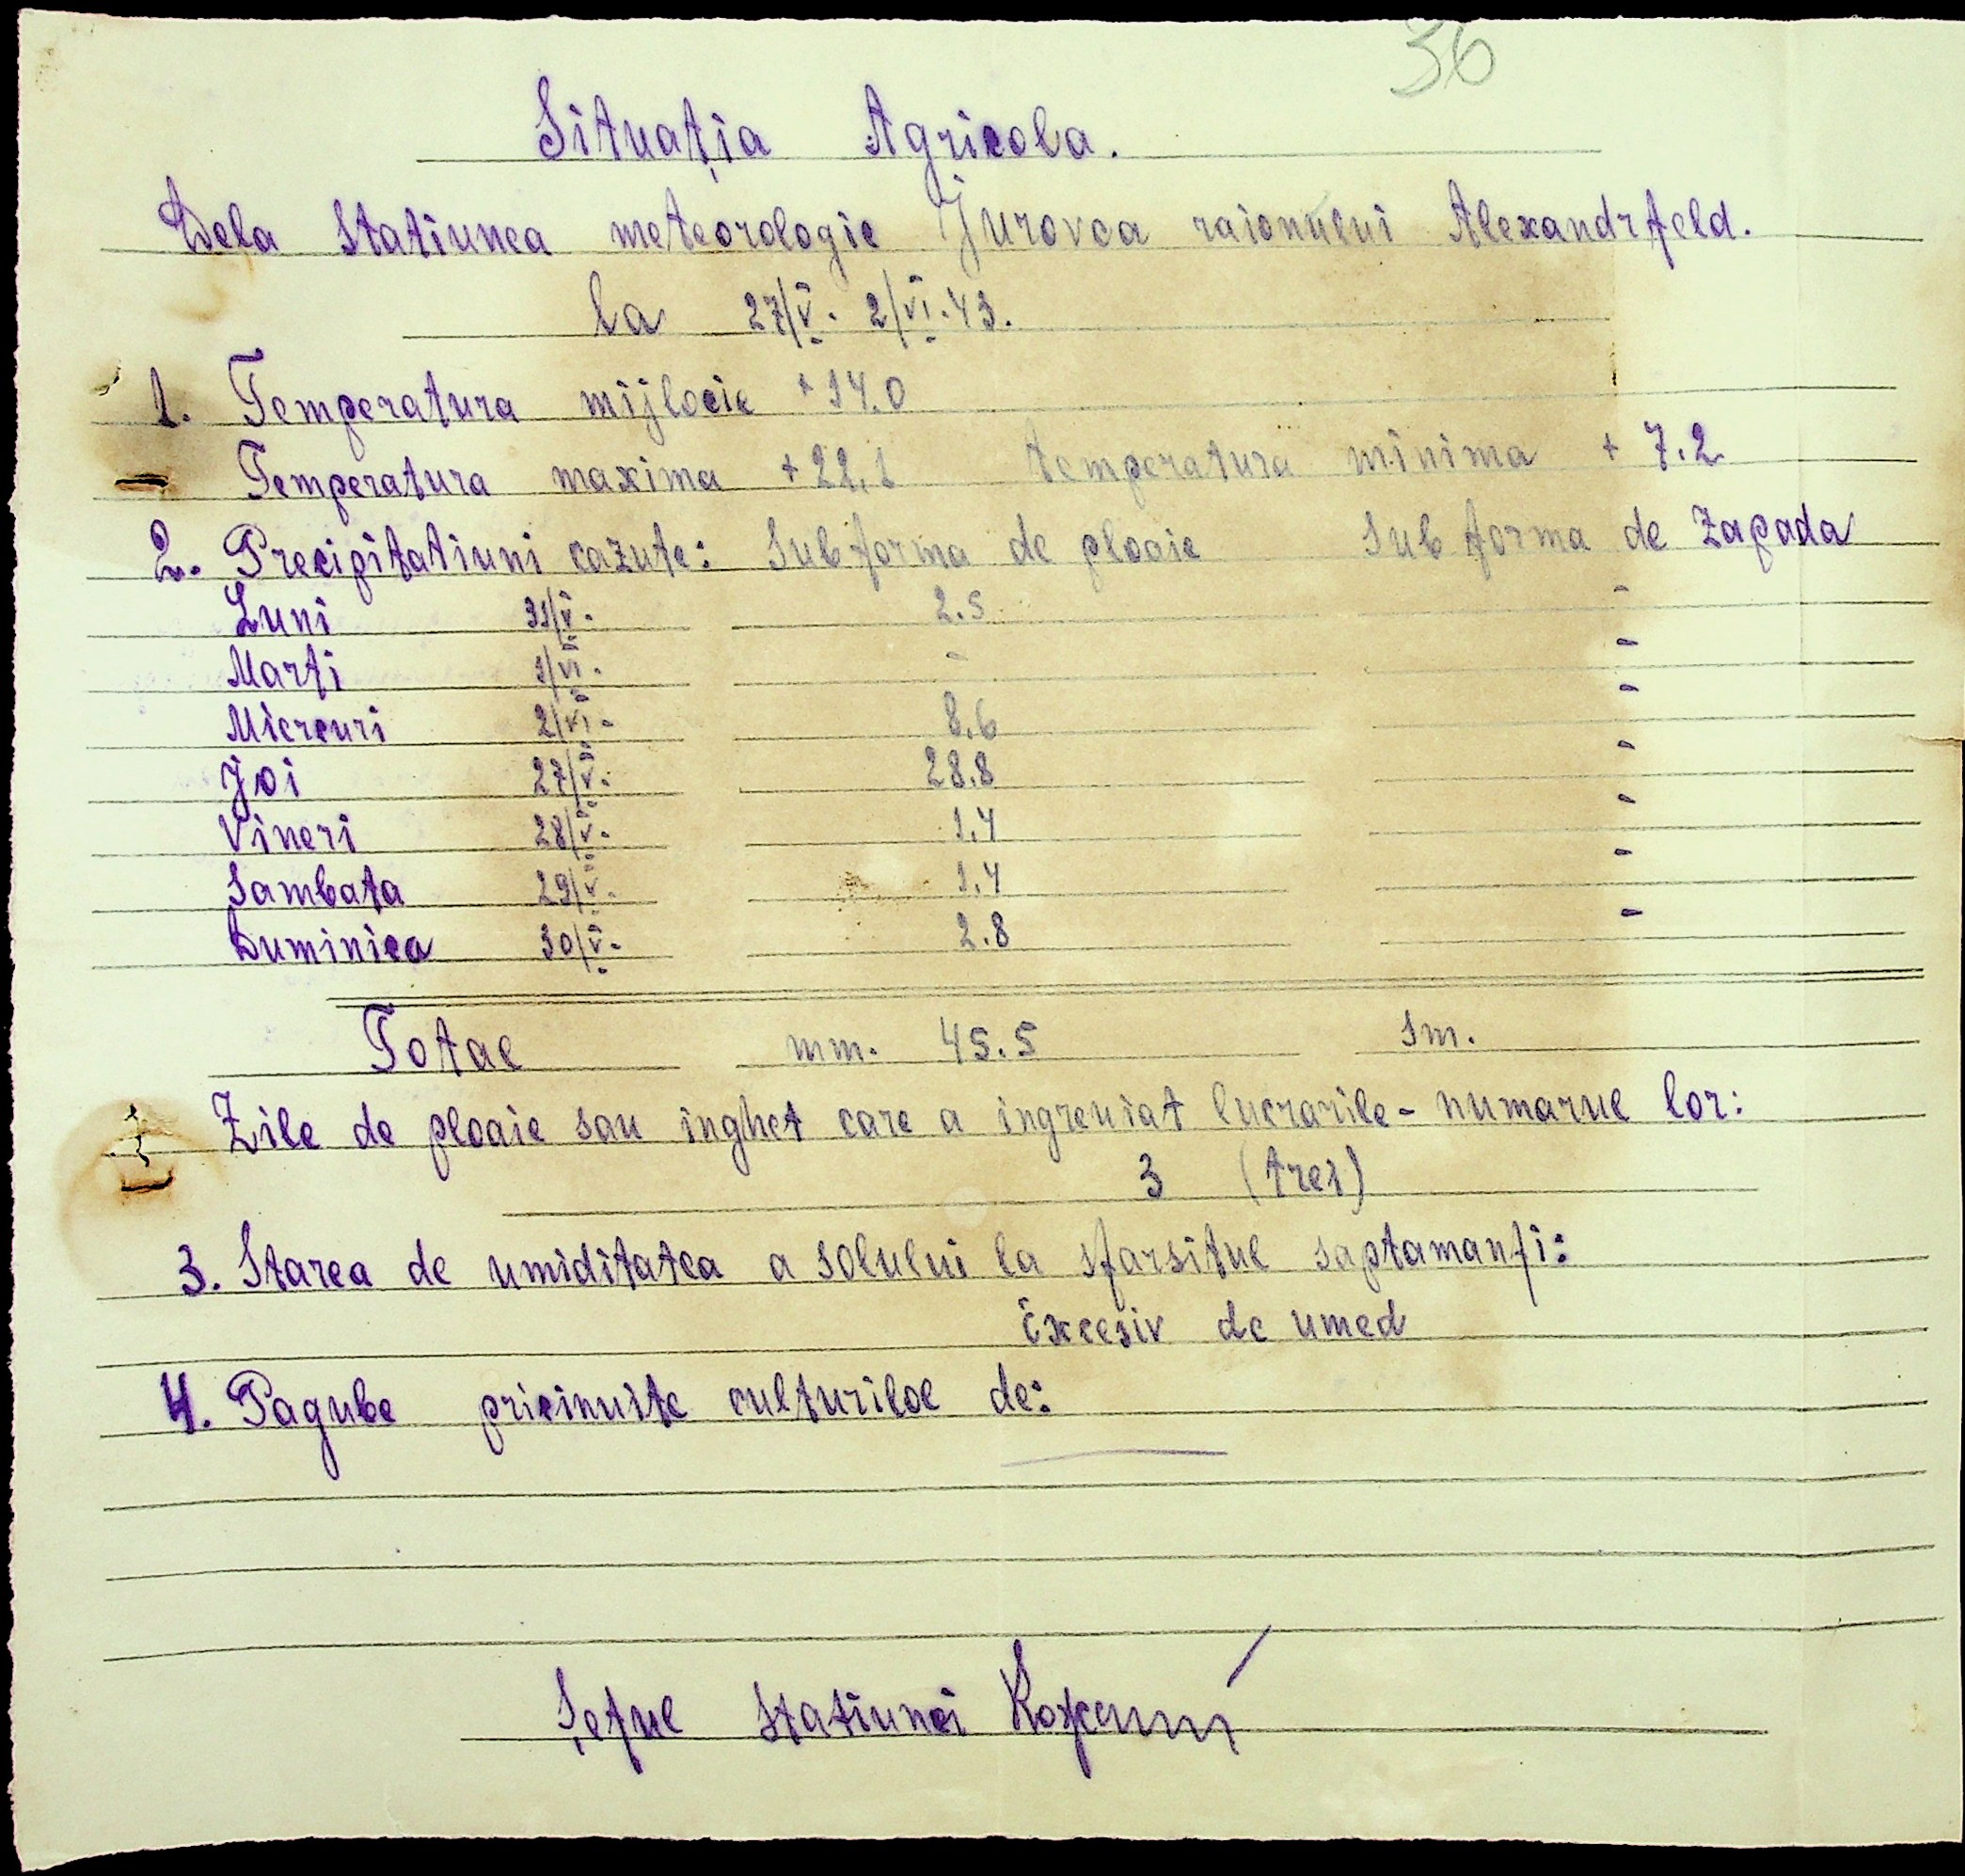 36
Situația Agricola.
Dela Statiunea meteorologie Jurovca raionului Alexandrfeld.
la 27/V. 2/VI.43.
1. Temperatura mijlocie +14.0
Temperatura maxima +22,1 temperatura minima + 7.2
2. Precipitatiuni cazute: Sub forma de ploaie Sub forma de Zapada
Luni 31/V. 2.5 -
Marti 1/VI. - -
Miercuri 2/VI- 8.6 -
Joi 27/V. 28.8 -
Vineri 28/V. 1.4 -
Sambata 29/V. 1.4 -
Duminica 30/V. 2.8 -
Total mm. 45.5 sm.
Zile de ploaie sau inghet care a ingreuiat lucrarile - numarul lor:
3 (trei)
3. Starea de umiditatea a solului la sfarsitul saptamanti:
Excesiv de umed
4. Pagube pricinuite culturilol de:
Șeful Statiunei